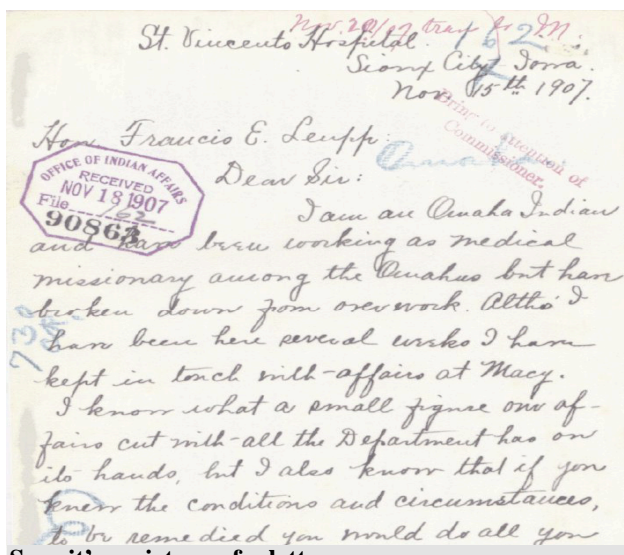 Nov. 20/07
St. Vincents Hospital.
Sioux City - Iowa.
Nov 15th 1907.
Bring to attention of
Commissioner.
Hon Francis E. Leupp:
Omaha
OFFICE OF INDIAN AFFAIRS
RECEIVED
NOV 18 1907
File
90863
Dear Sir:
I am an Omaha Indian
and have been working as medical
missionary among the Omahas but have
broken down from overwork. Altho' I
have been here several weeks I have
kept in touch with affairs at Macy.
I know what a small figure our af-
fairs cut with all the Department has on
its hands, but I also know that if you
knew the conditions and circumstances,
to be remedied you would do all you